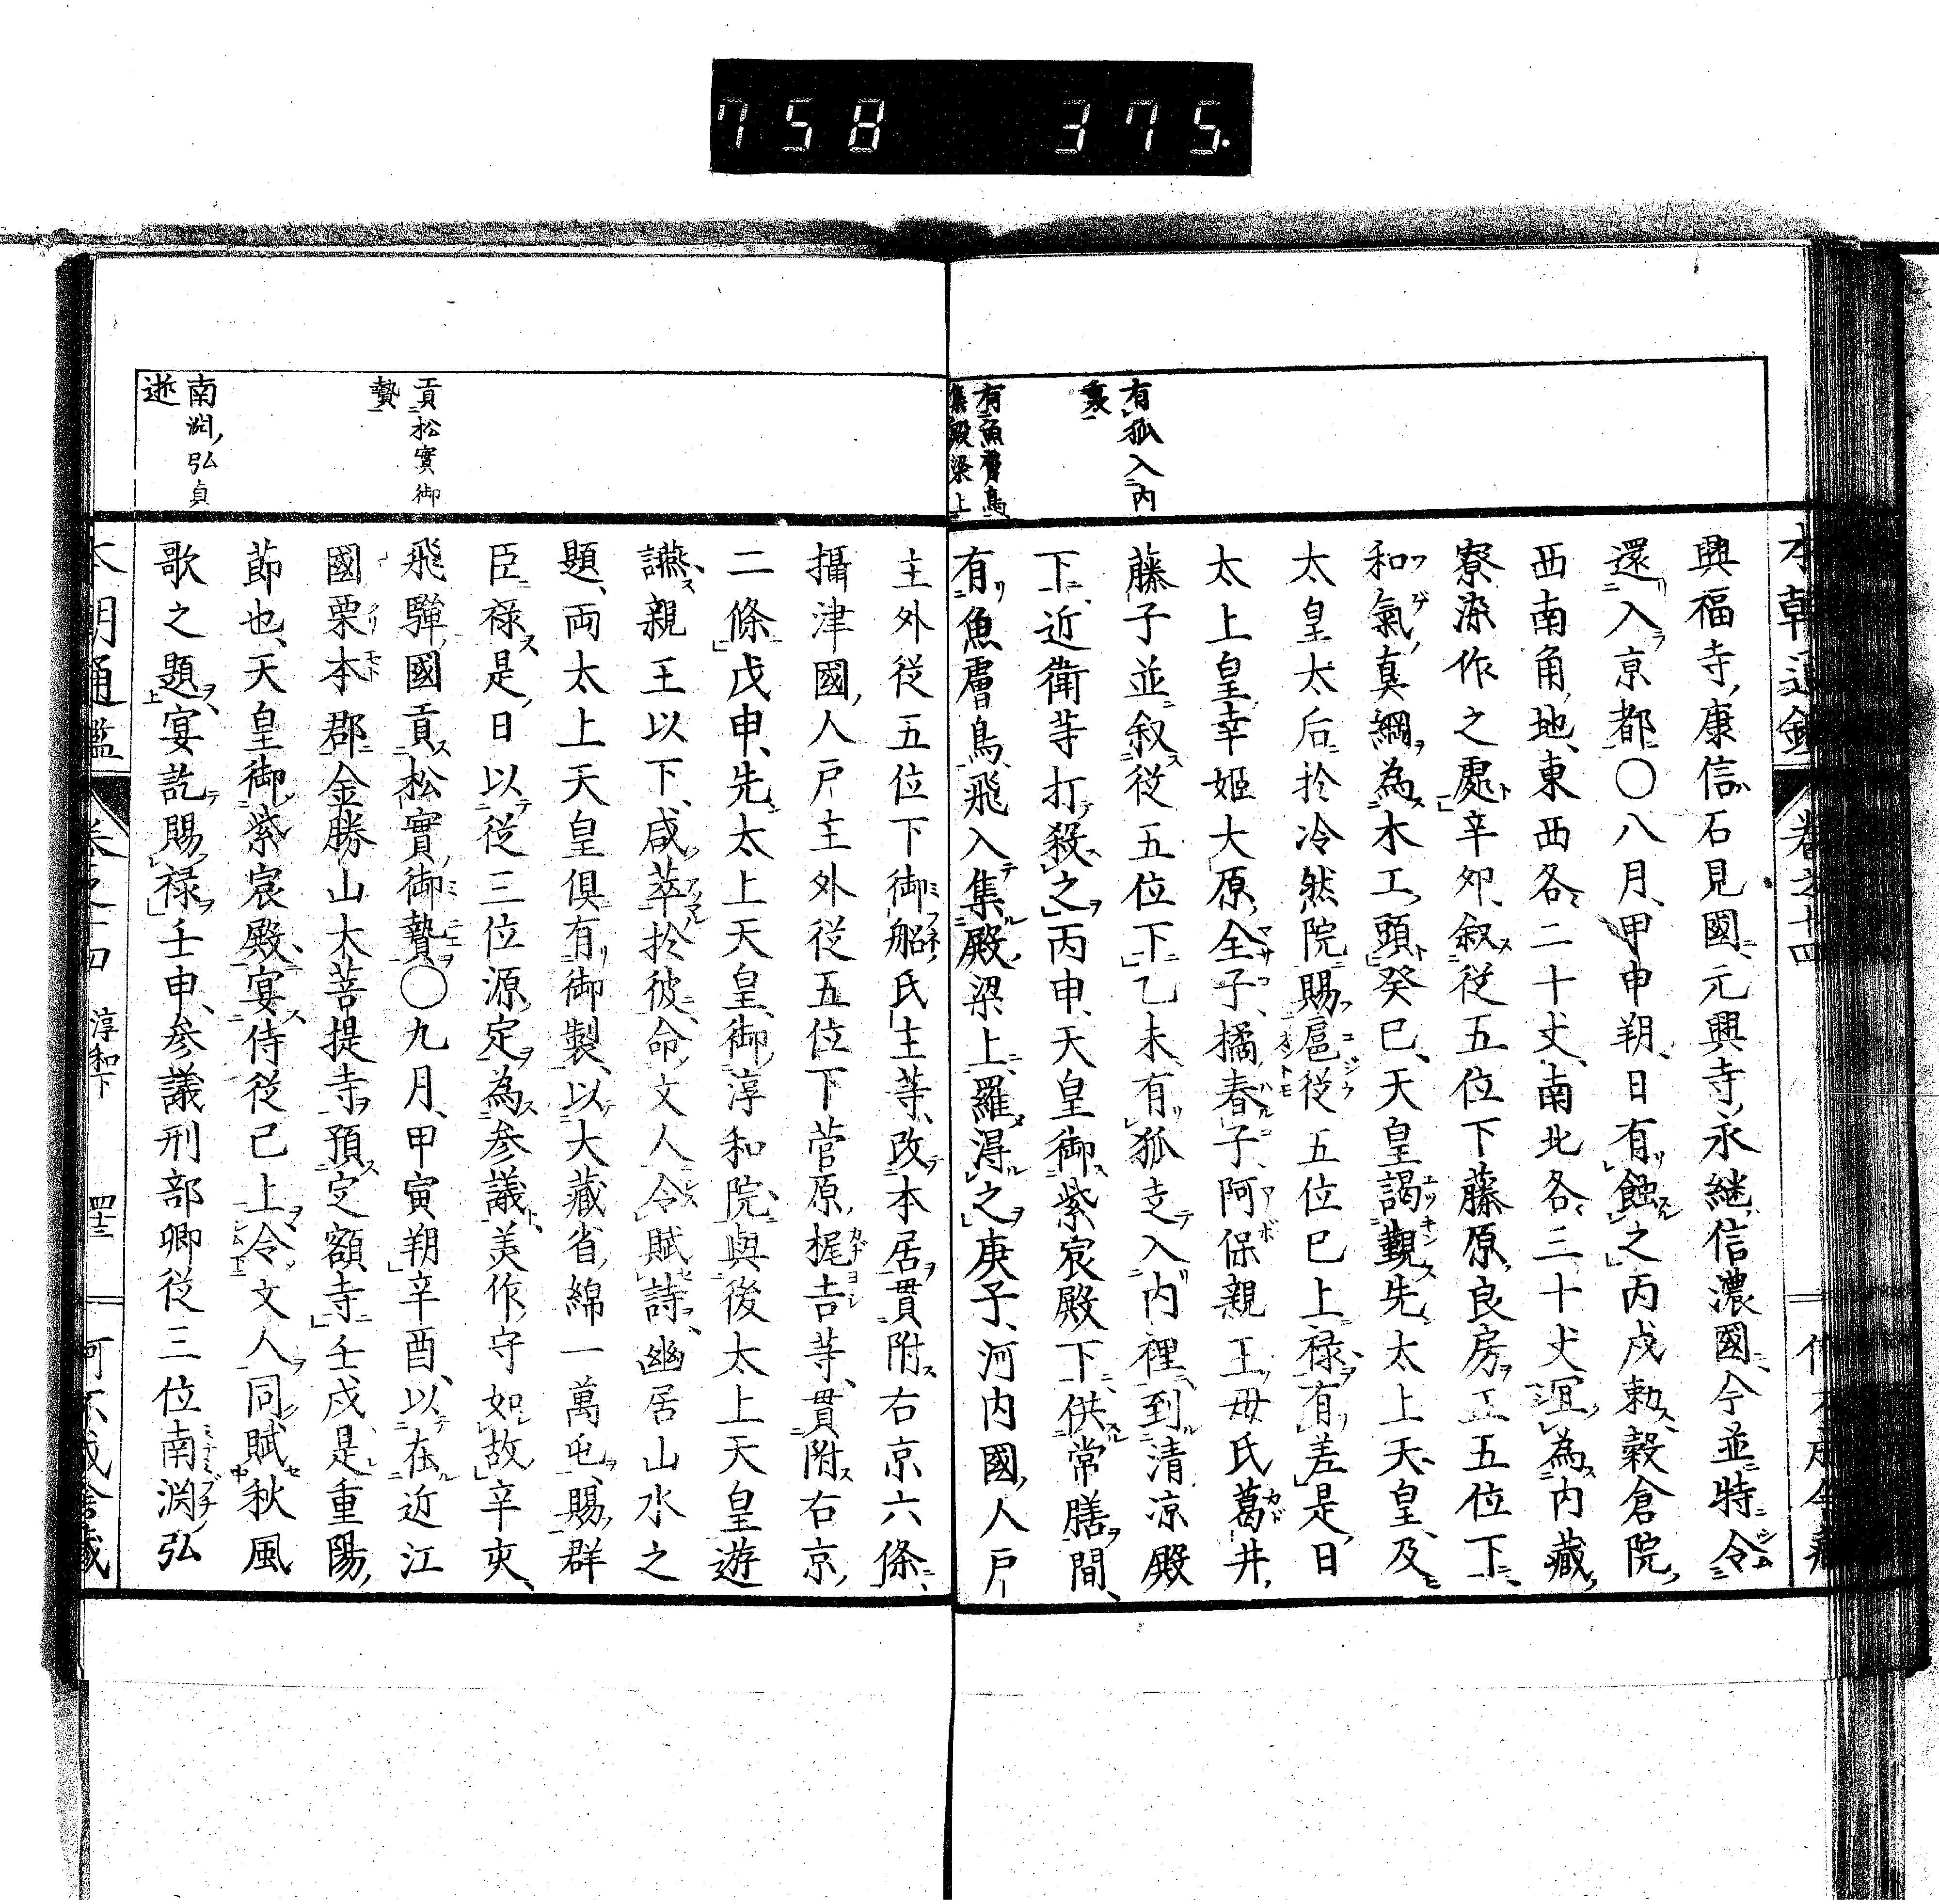 758 375.
有狐入内
裏
有魚膚鳥
集殿梁上
興福寺康信石見國元興寺永継信濃國今並特令
還入京都〇八月甲申朔日有蝕之丙戌勅穀倉院
西南角地東西各二十丈南北各三十丈宜為内藏
寮染作之處辛夘叙従五位下藤原良房正五位下
和氣真綱為木工頭癸巳天皇謁觀先太上天皇及
太皇太后於冷然院賜扈従五位已上禄有差是日
太上皇幸姬大原全子橘春子阿保親王母氏葛井
藤子並叙従五位下乙未有狐走入内裡到清凉殿
下近衛等打殺之丙申天皇御紫宸殿下供常膳間
有魚膚鳥飛入集殿梁上羅淂之庚子河内國人戸
主外従五位下御船氏主等改本居貫附右京六條
攝津國人戸主外従五位下菅原梶吉等貫附右京
二條戊申先太上天皇御淳和院與後太上天皇遊
讌親王以下咸萃於彼命文人令賦詩幽居山水之
題両太上天皇俱有御製以大藏省綿一萬屯賜群
臣禄是日以従三位源定為参議美作守如故辛亥
飛驒國貢松實御贄〇九月甲寅朔辛酉以在近江
國栗本郡金勝山大菩提寺預定額寺壬戌是重陽
節也天皇御紫宸殿宴侍従已上令文人同賦秋風
歌之題宴訖賜禄壬申参議刑部卿従三位南淵弘
貢松實御
贄
南淵弘貞
逝
本朝通鑑 卷之十四 淳和下 四十三